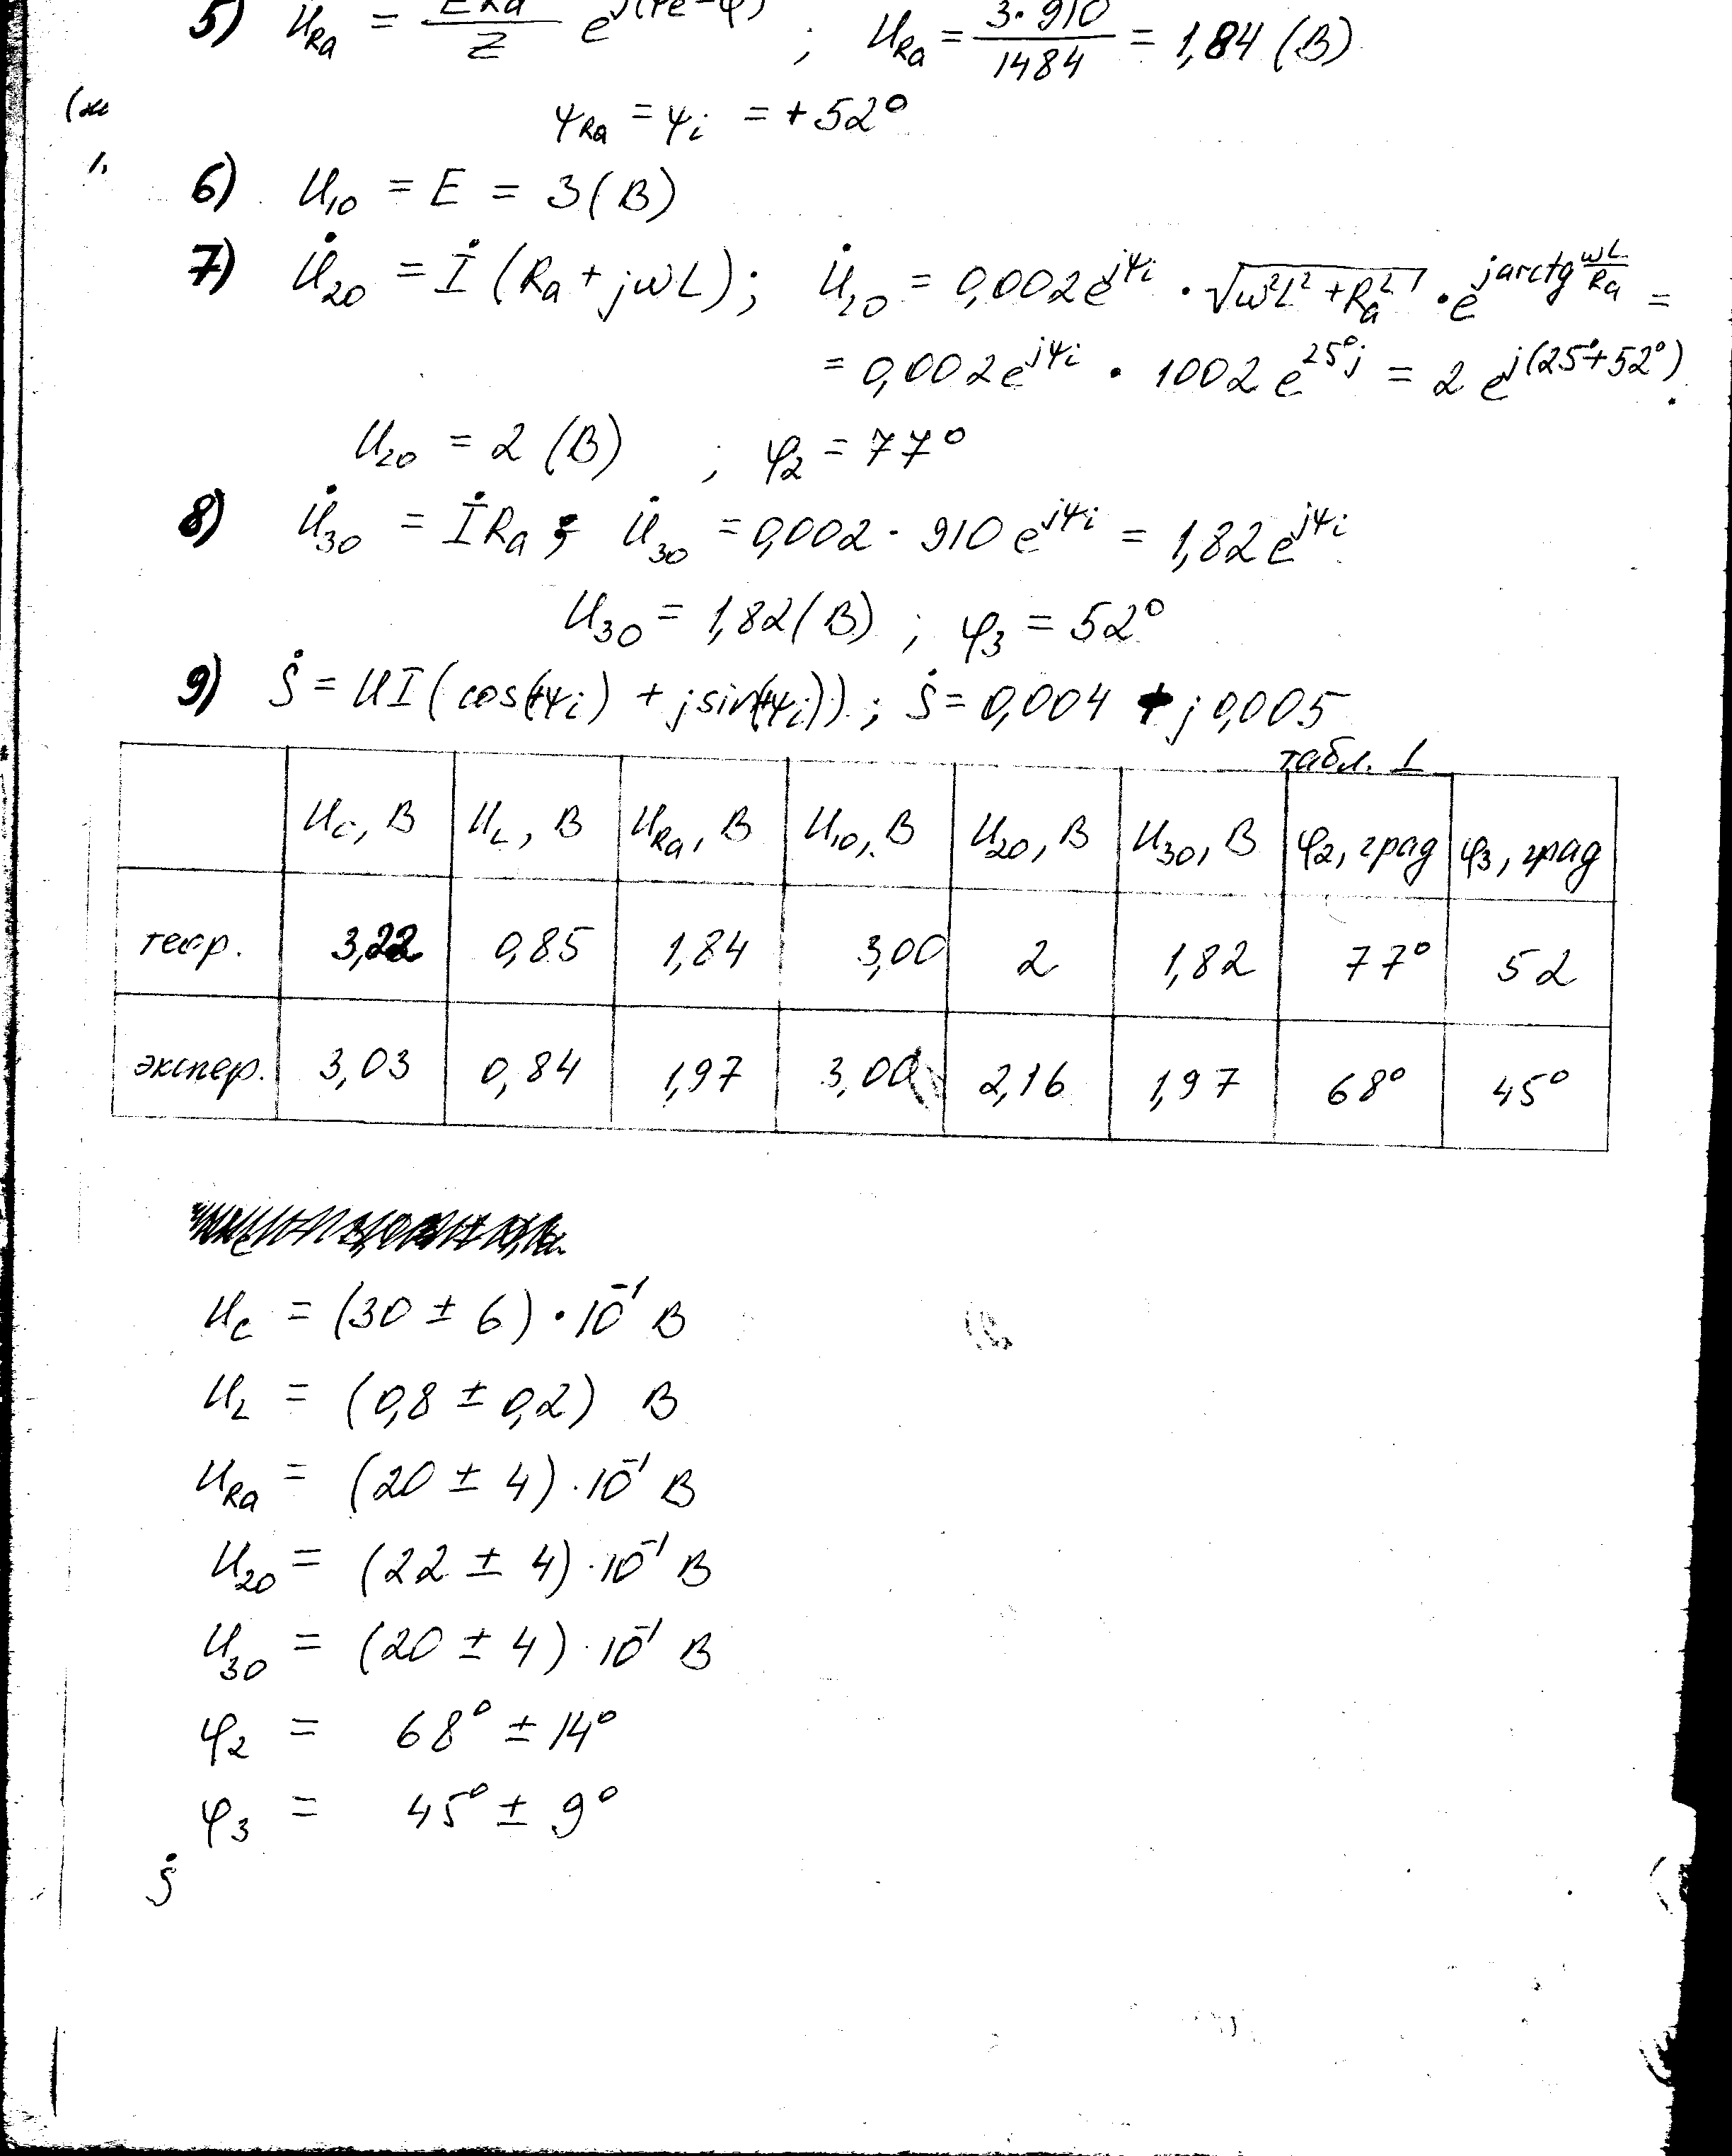 5) U̇Ra = ERa/Z e^j(ψe-φ) ; URa = 3·910/1484 = 1,84 (В)
ψRa = ψi = +52°
1.
6) U10 = E = 3 (В)
7) U̇20 = İ (Ra + jωL); U̇20 = 0,002e^jψi · √(ω²L² + Ra²) · e^(jarctg ωL/Ra) =
= 0,002e^jψi · 1002 e^25°j = 2 e^j(25°+52°).
U20 = 2 (В) ; φ2 = 77°
8) U̇30 = İRa ; U̇30 = 0,002 · 910 e^jψi = 1,82 e^jψi
U30 = 1,82 (В) ; φ3 = 52°
9) Ṡ = UI (cos(+ψi) + jsin(+ψi)) ; Ṡ = 0,004 + j0,005
табл. 1
Uc, В UL, В URa, В U10, В U20, В U30, В φ2, град φ3, град
теор. 3,22 0,85 1,84 3,00 2 1,82 77° 52
экспер. 3,03 0,84 1,97 3,00 2,16 1,97 68° 45°
Uc = (30 ± 6) · 10^-1 В
UL = (0,8 ± 0,2) В
URa = (20 ± 4) · 10^-1 В
U20 = (22 ± 4) · 10^-1 В
U30 = (20 ± 4) · 10^-1 В
φ2 = 68° ± 14°
φ3 = 45° ± 9°
Ṡ